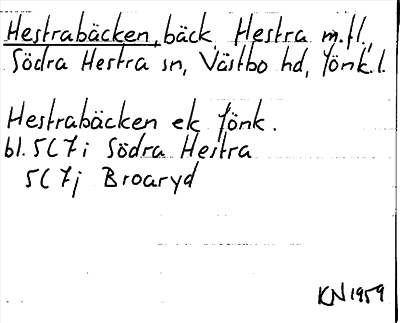 Hestrabäcken, bäck Hestra m.fl.,
Södra Hestra sn, Västbo hd, Jönk.l.
Hestrabäcken ek Jönk.
bl. 5C7i Södra Hestra
5C7j Broaryd
KN 1959